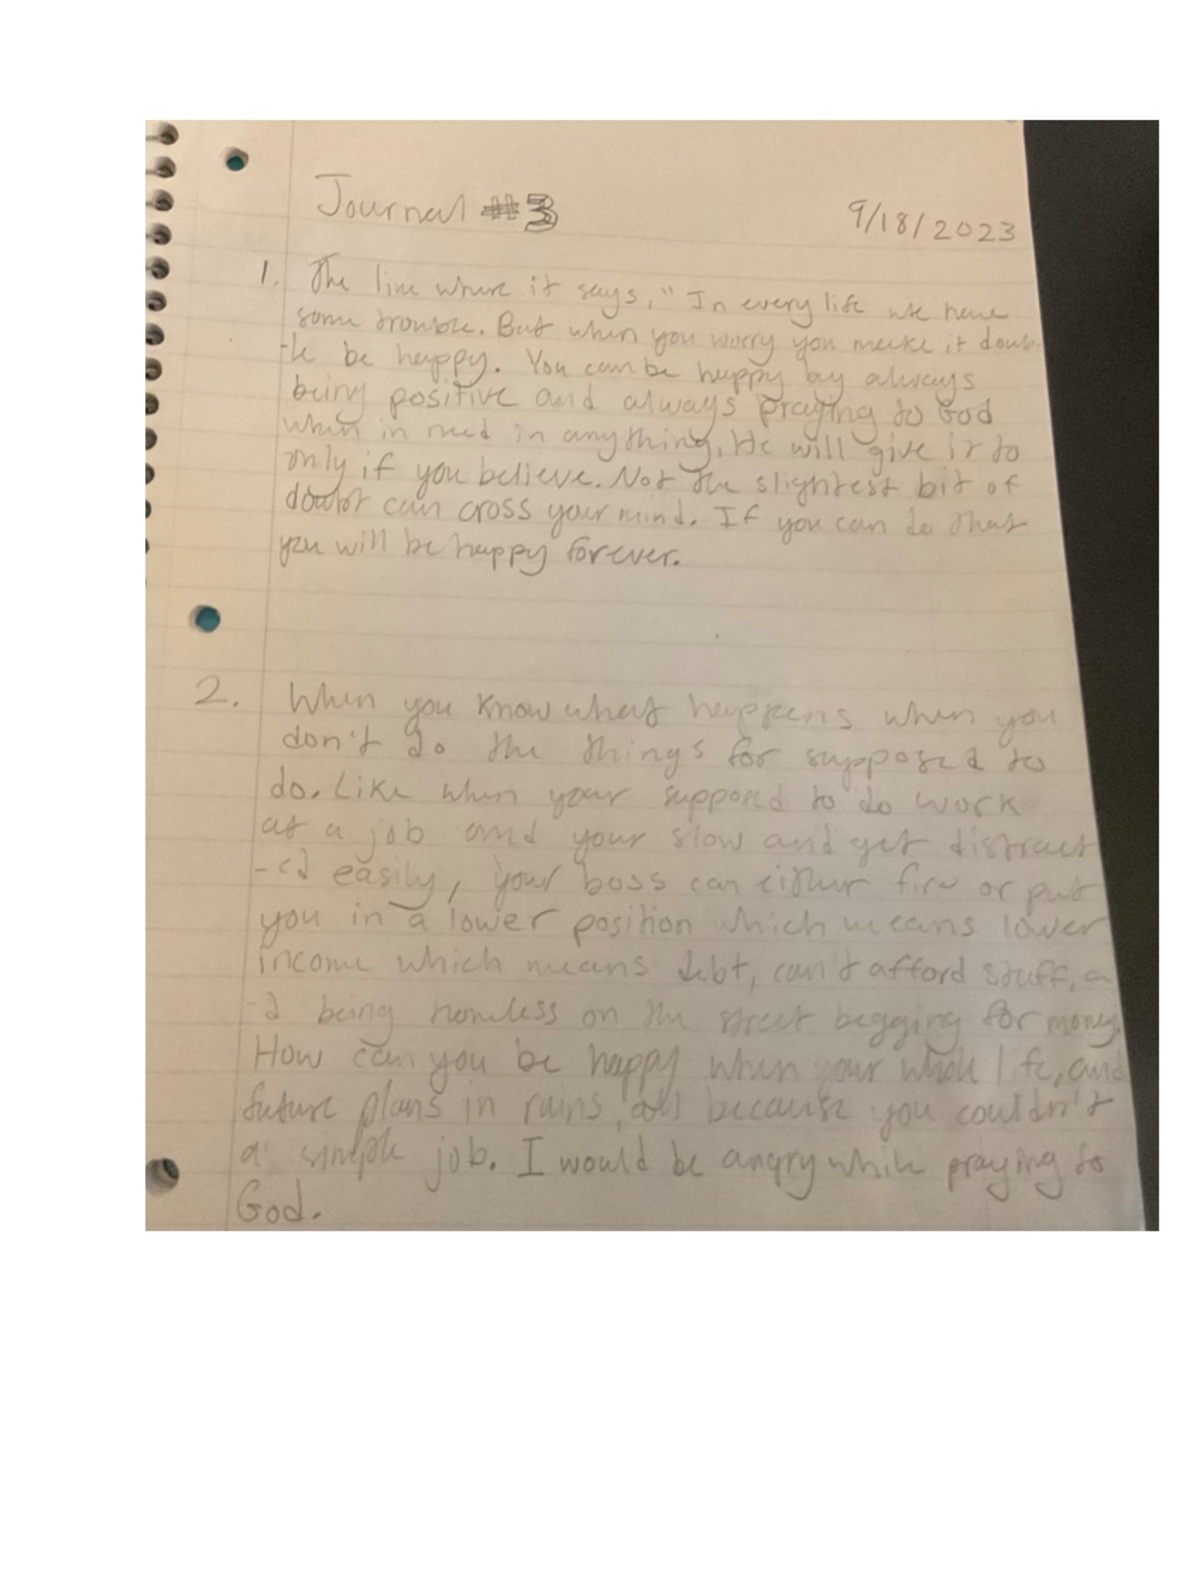 Journal #3
9/18/2023
1. The line where it says, " In every life we have
some trouble. But when you worry you make it doub-
-le be happy. You can be happy by always
being positive and always praying to God
when in need in anything. He will give it to
only if you believe. Not the slightest bit of
doubt can cross your mind. If you can do that
you will be happy forever.
2. When you know what happens when you
don't do the things for supposed to
do. Like when your supposed to do work
at a job and your slow and get distract
-ed easily, your boss can either fire or put
you in a lower position which means lower
income which means debt, can't afford stuff, an
-d being homeless on the street begging for money.
How can you be happy when your whole life, and
future plans in ruins, all because you couldn't
a simple job. I would be angry while praying to
God.